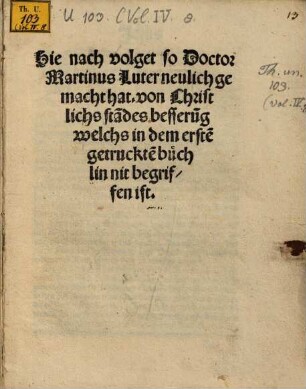 Th. U.
103
(IV. 8
U 103. (Vol. IV. 8.
13
Hie nach volget so Doctor
Martinus Luter neulich ge
macht hat. von Christ
lichs stādes besserūg
welchs in dem erstē
getrucktē büch
lin nit begrif⸗
fen ist.
Th. un.
103.
(Vol. IV. 8